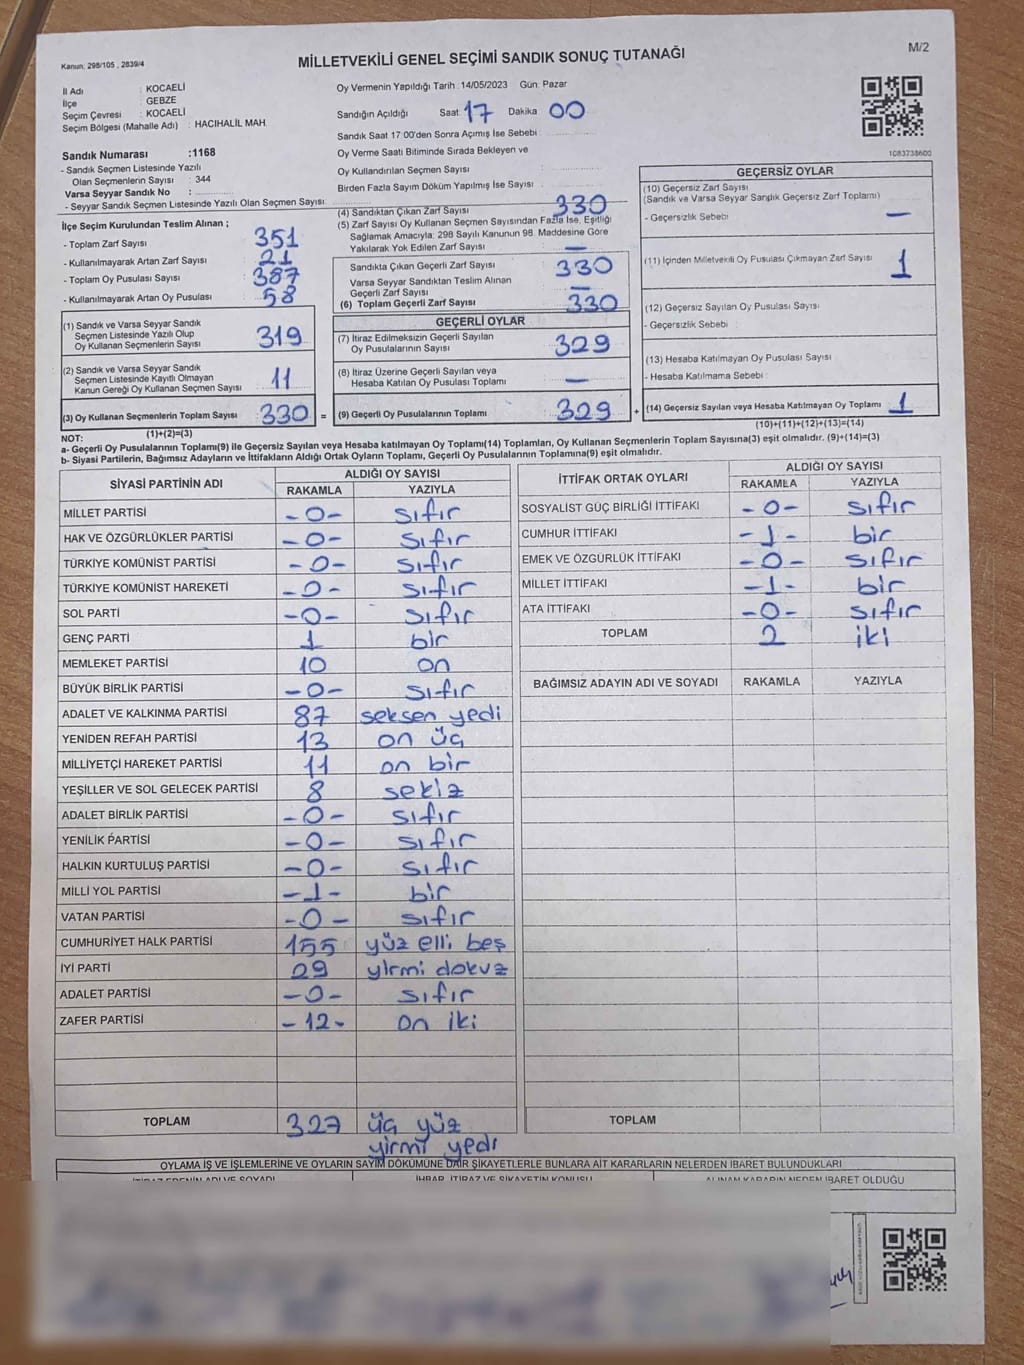 Kanun, 298/105 , 2839/4
MİLLETVEKİLİ GENEL SEÇİMİ SANDIK SONUÇ TUTANAĞI
M/2
İl Adı : KOCAELİ
İlçe : GEBZE
Seçim Çevresi : KOCAELİ
Seçim Bölgesi (Mahalle Adı) : HACIHALİL MAH.
Sandık Numarası :1168
- Sandık Seçmen Listesinde Yazılı
Olan Seçmenlerin Sayısı : 344
Varsa Seyyar Sandık No :
- Seyyar Sandık Seçmen Listesinde Yazılı Olan Seçmen Sayısı
Oy Vermenin Yapıldığı Tarih :14/05/2023 Gün: Pazar
Sandığın Açıldığı Saat: 17 Dakika 00
Sandık Saat 17:00'den Sonra Açımış İse Sebebi :
Oy Verme Saati Bitiminde Sırada Bekleyen ve
Oy Kullandırılan Seçmen Sayısı
Birden Fazla Sayım Döküm Yapılmış İse Sayısı
1083738600
İlçe Seçim Kurulundan Teslim Alınan ;
- Toplam Zarf Sayısı 351
- Kullanılmayarak Artan Zarf Sayısı 21
- Toplam Oy Pusulası Sayısı 387
- Kullanılmayarak Artan Oy Pusulası 58
(1) Sandık ve Varsa Seyyar Sandık
Seçmen Listesinde Yazılı Olup
Oy Kullanan Seçmenlerin Sayısı 319
(2) Sandık ve Varsa Seyyar Sandık
Seçmen Listesinde Kayıtlı Olmayan
Kanun Gereği Oy Kullanan Seçmen Sayısı 11
(3) Oy Kullanan Seçmenlerin Toplam Sayısı 330 =
(1)+(2)=(3)
(4) Sandıktan Çıkan Zarf Sayısı 330
(5) Zarf Sayısı Oy Kullanan Seçmen Sayısından Fazla İse, Eşitliği
Sağlamak Amacıyla: 298 Sayılı Kanunun 98. Maddesine Göre
Yakılarak Yok Edilen Zarf Sayısı : —
Sandıkta Çıkan Geçerli Zarf Sayısı 330
Varsa Seyyar Sandıktan Teslim Alınan
Geçerli Zarf Sayısı —
(6) Toplam Geçerli Zarf Sayısı 330
GEÇERLİ OYLAR
(7) İtiraz Edilmeksizin Geçerli Sayılan
Oy Pusulalarının Sayısı 329
(8) İtiraz Üzerine Geçerli Sayılan veya
Hesaba Katılan Oy Pusulası Toplamı —
(9) Geçerli Oy Pusulalarının Toplamı 329 +
GEÇERSİZ OYLAR
(10) Geçersiz Zarf Sayısı
(Sandık ve Varsa Seyyar Sandık Geçersiz Zarf Toplamı)
- Geçersizlik Sebebi —
(11) İçinden Milletvekili Oy Pusulası Çıkmayan Zarf Sayısı 1
(12) Geçersiz Sayılan Oy Pusulası Sayısı
- Geçersizlik Sebebi :
(13) Hesaba Katılmayan Oy Pusulası Sayısı
- Hesaba Katılmama Sebebi :
(14) Geçersiz Sayılan veya Hesaba Katılmayan Oy Toplamı 1
(10)+(11)+(12)+(13)=(14)
NOT:
a- Geçerli Oy Pusulalarının Toplamı(9) ile Geçersiz Sayılan veya Hesaba katılmayan Oy Toplamı(14) Toplamları, Oy Kullanan Seçmenlerin Toplam Sayısına(3) eşit olmalıdır. (9)+(14)=(3)
b- Siyasi Partilerin, Bağımsız Adayların ve İttifakların Aldığı Ortak Oyların Toplamı, Geçerli Oy Pusulalarının Toplamına(9) eşit olmalıdır.
SİYASİ PARTİNİN ADI ALDIĞI OY SAYISI
RAKAMLA YAZIYLA
MİLLET PARTİSİ -0- sıfır
HAK VE ÖZGÜRLÜKLER PARTİSİ -0- sıfır
TÜRKİYE KOMÜNİST PARTİSİ -0- sıfır
TÜRKİYE KOMÜNİST HAREKETİ -0- sıfır
SOL PARTİ -0- sıfır
GENÇ PARTİ 1 bir
MEMLEKET PARTİSİ 10 on
BÜYÜK BİRLİK PARTİSİ -0- sıfır
ADALET VE KALKINMA PARTİSİ 87 seksen yedi
YENİDEN REFAH PARTİSİ 13 on üç
MİLLİYETÇİ HAREKET PARTİSİ 11 on bir
YEŞİLLER VE SOL GELECEK PARTİSİ 8 sekiz
ADALET BİRLİK PARTİSİ -0- sıfır
YENİLİK PARTİSİ -0- sıfır
HALKIN KURTULUŞ PARTİSİ -0- sıfır
MİLLİ YOL PARTİSİ -1- bir
VATAN PARTİSİ -0- sıfır
CUMHURİYET HALK PARTİSİ 155 yüz elli beş
İYİ PARTİ 29 yirmi dokuz
ADALET PARTİSİ -0- sıfır
ZAFER PARTİSİ -12- on iki
TOPLAM 327 üç yüz
yirmi yedi
İTTİFAK ORTAK OYLARI ALDIĞI OY SAYISI
RAKAMLA YAZIYLA
SOSYALİST GÜÇ BİRLİĞİ İTTİFAKI -0- sıfır
CUMHUR İTTİFAKI -1- bir
EMEK VE ÖZGÜRLÜK İTTİFAKI -0- sıfır
MİLLET İTTİFAKI -1- bir
ATA İTTİFAKI -0- sıfır
TOPLAM 2 iki
BAĞIMSIZ ADAYIN ADI VE SOYADI RAKAMLA YAZIYLA
TOPLAM
OYLAMA İŞ VE İŞLEMLERİNE VE OYLARIN SAYIM DÖKÜMÜNE DAİR ŞİKAYETLERLE BUNLARA AİT KARARLARIN NELERDEN İBARET BULUNDUKLARI
İTİRAZ EDENİN ADI VE SOYADI İHBAR, İTİRAZ VE ŞİKAYETİN KONUSU ALINAN KARARIN NEDEN İBARET OLDUĞU